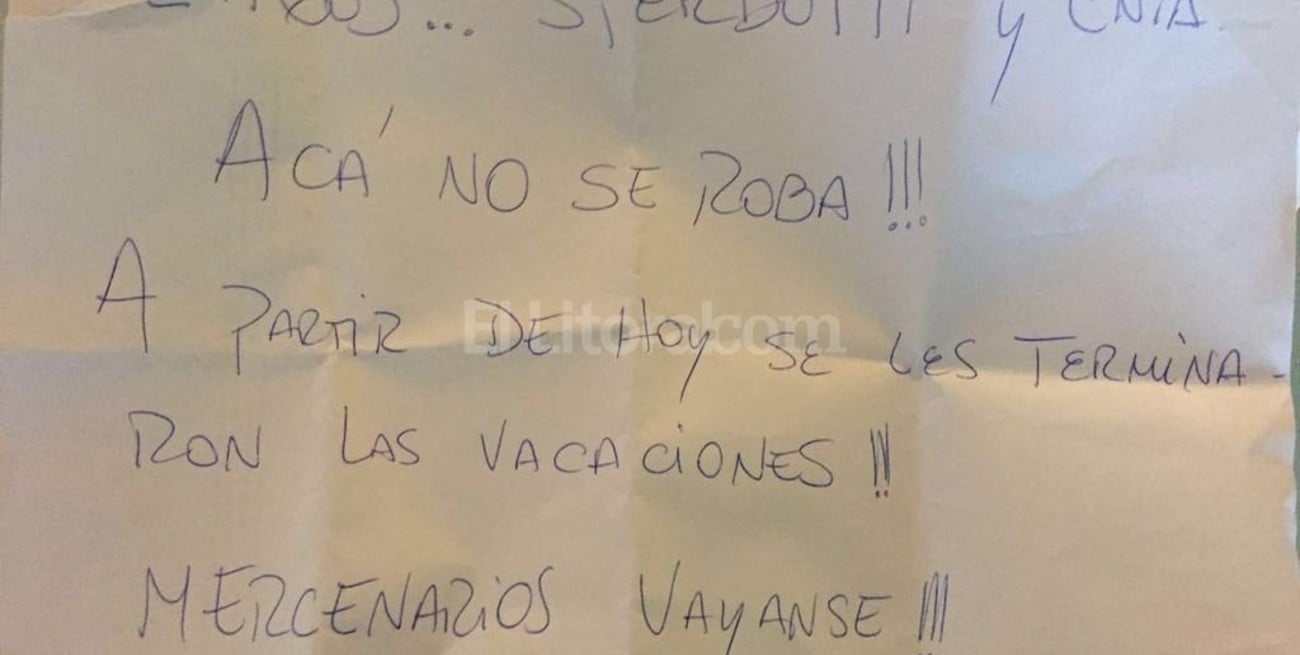 ... SPERDUTTI y CNIA.
ACÁ NO SE ROBA!!!
A PARTIR DE HOY SE LES TERMINA-
RON LAS VACACIONES!!!
MERCENARIOS VAYANSE!!!
El Litoral.com